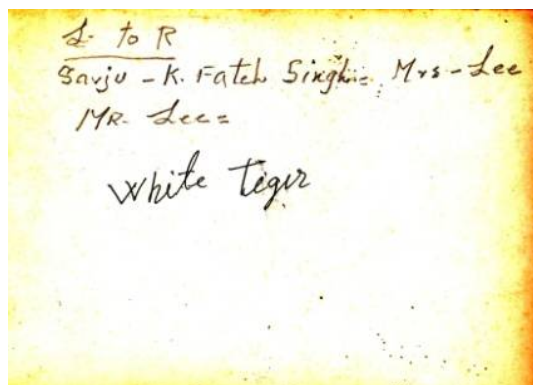 L. to R
Sarju - K. Fateh Singh = Mrs - Lee
MR. Lee =
White Teger